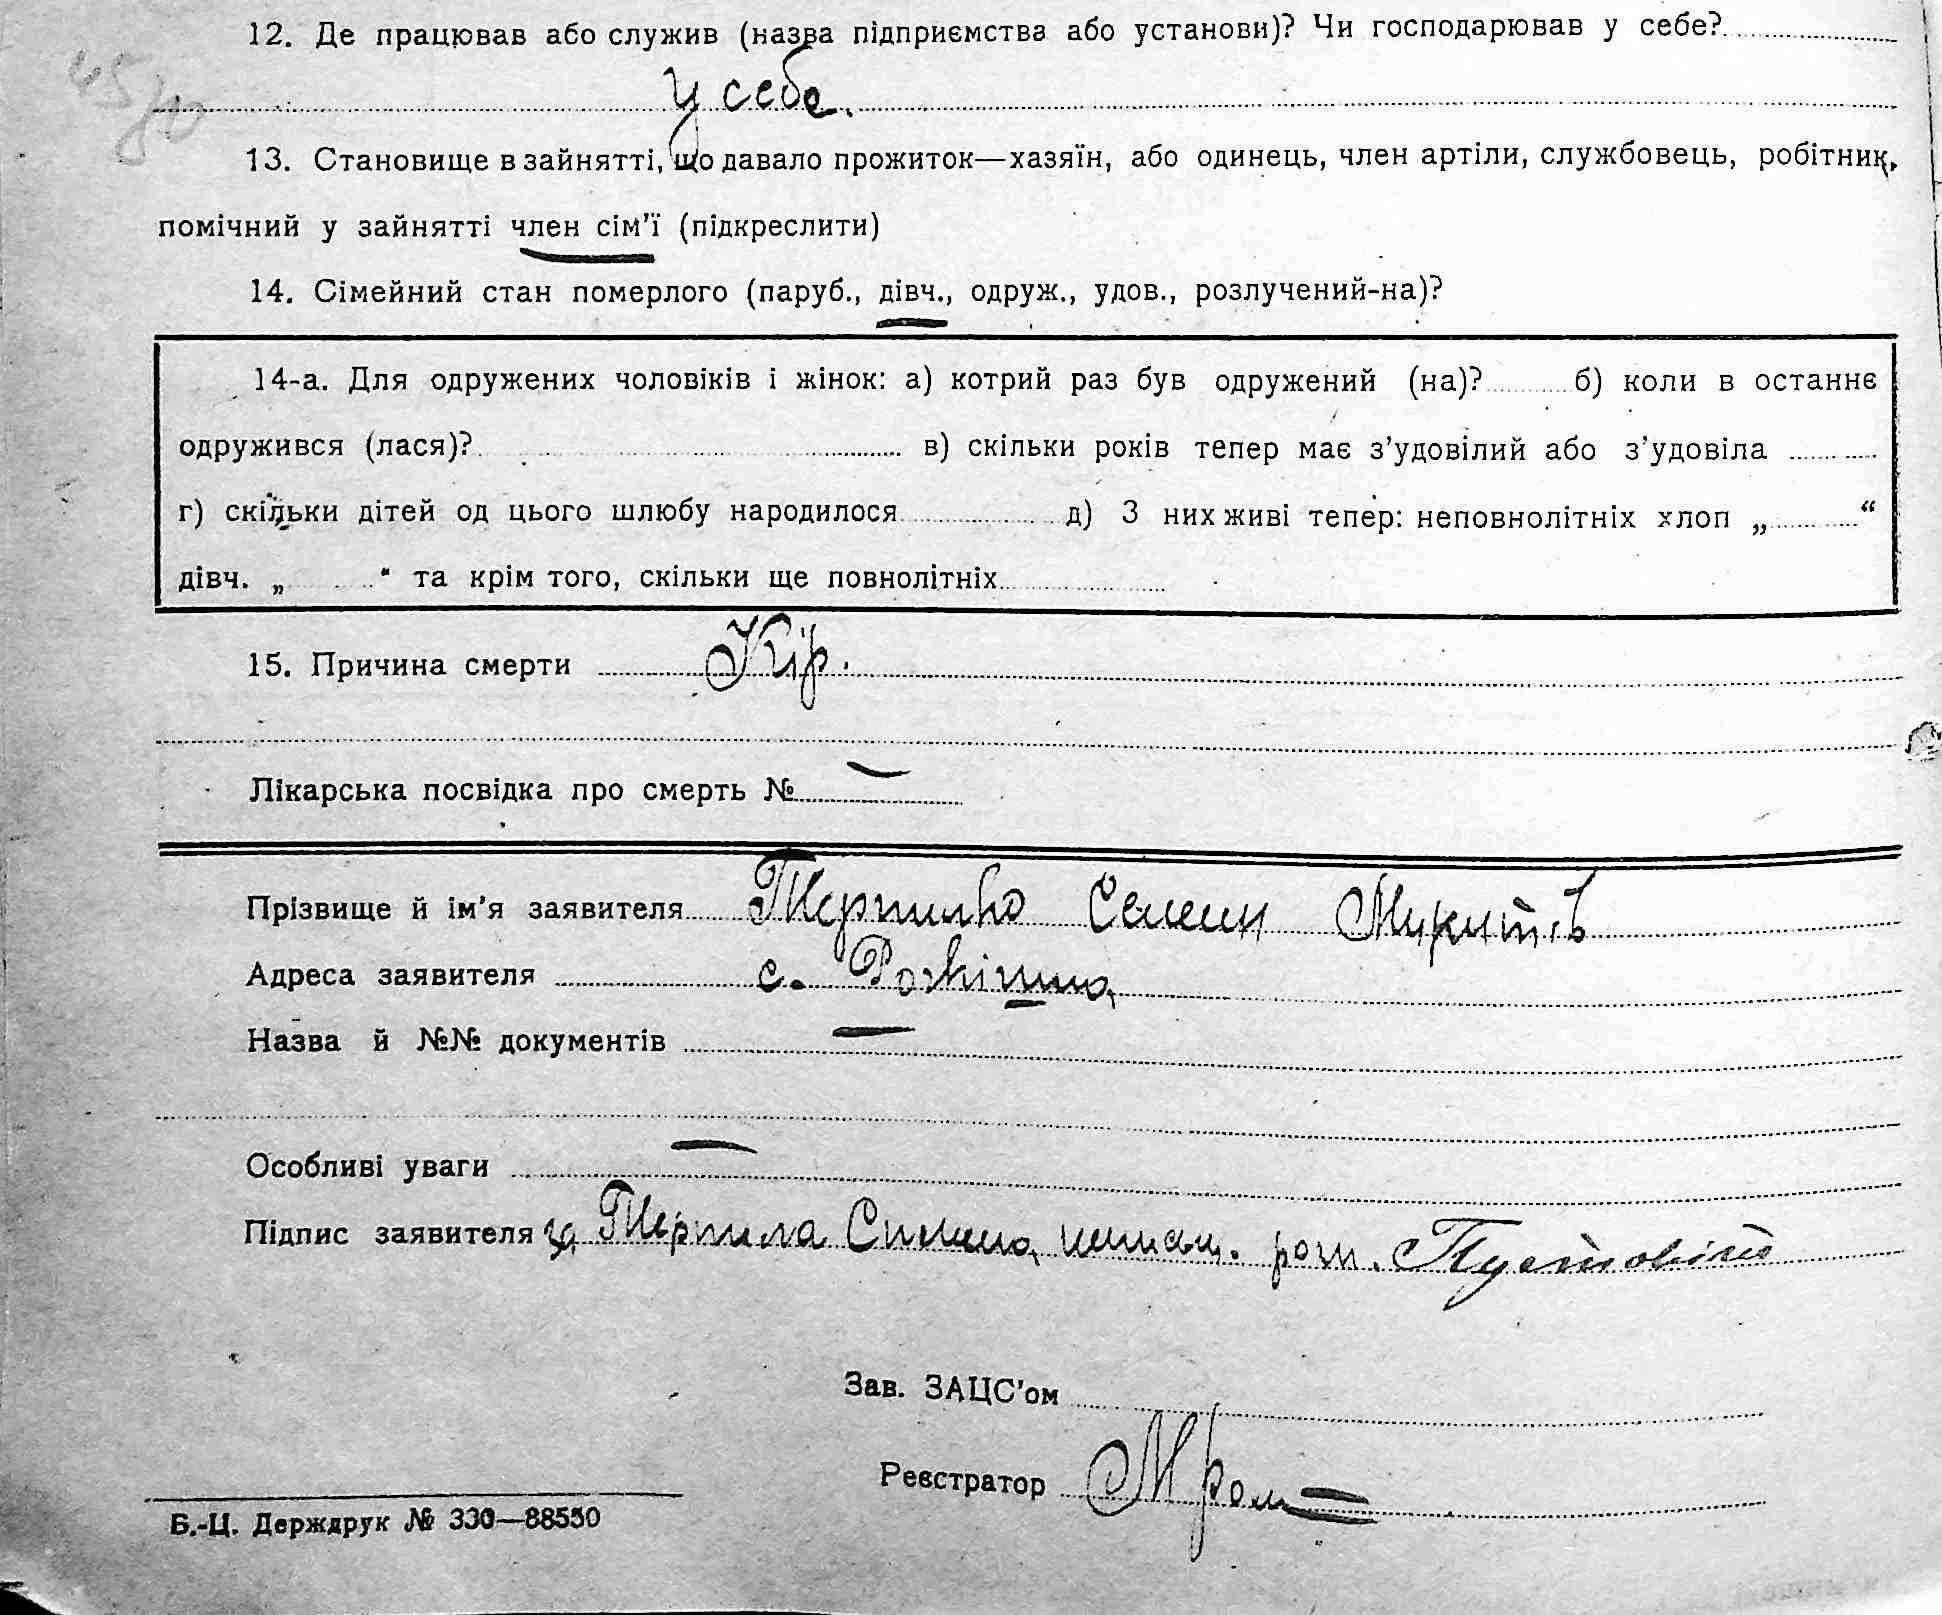 12. Де працював або служив (назва підприємства або установи)? Чи господарював у себе?
45/70
У себе.
13. Становище в зайнятті, що давало прожиток—хазяїн, або одинець, член артіли, службовець, робітник,
помічний у зайнятті член сім'ї (підкреслити)
14. Сімейний стан померлого (паруб., дівч., одруж., удов., розлучений-на)?
14-а. Для одружених чоловіків і жінок: а) котрий раз був одружений (на)? б) коли в останнє
одружився (лася)? в) скільки років тепер має з'удовілий або з'удовіла
г) скільки дітей од цього шлюбу народилося д) З них живі тепер: неповнолітніх хлоп „ “
дівч. „ “ та крім того, скільки ще повнолітніх
15. Причина смерти Кір.
Лікарська посвідка про смерть № —
Прізвище й ім'я заявителя Терпило Семен Микитів
Адреса заявителя с. Рокитна
Назва й №№ документів —
Особливі уваги —
Підпис заявителя за Терпила Симена неписьм. розп. Пустовіт
Зав. ЗАЦС'ом
Реєстратор
Б.-Ц. Держдрук № 330—88550